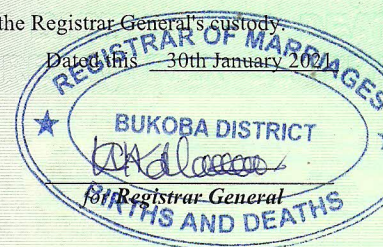 the Registrar General's custody.
Dated this 30th January 2021
REGISTRAR OF MARRIAGES
BUKOBA DISTRICT
for Registrar General
BIRTHS AND DEATHS